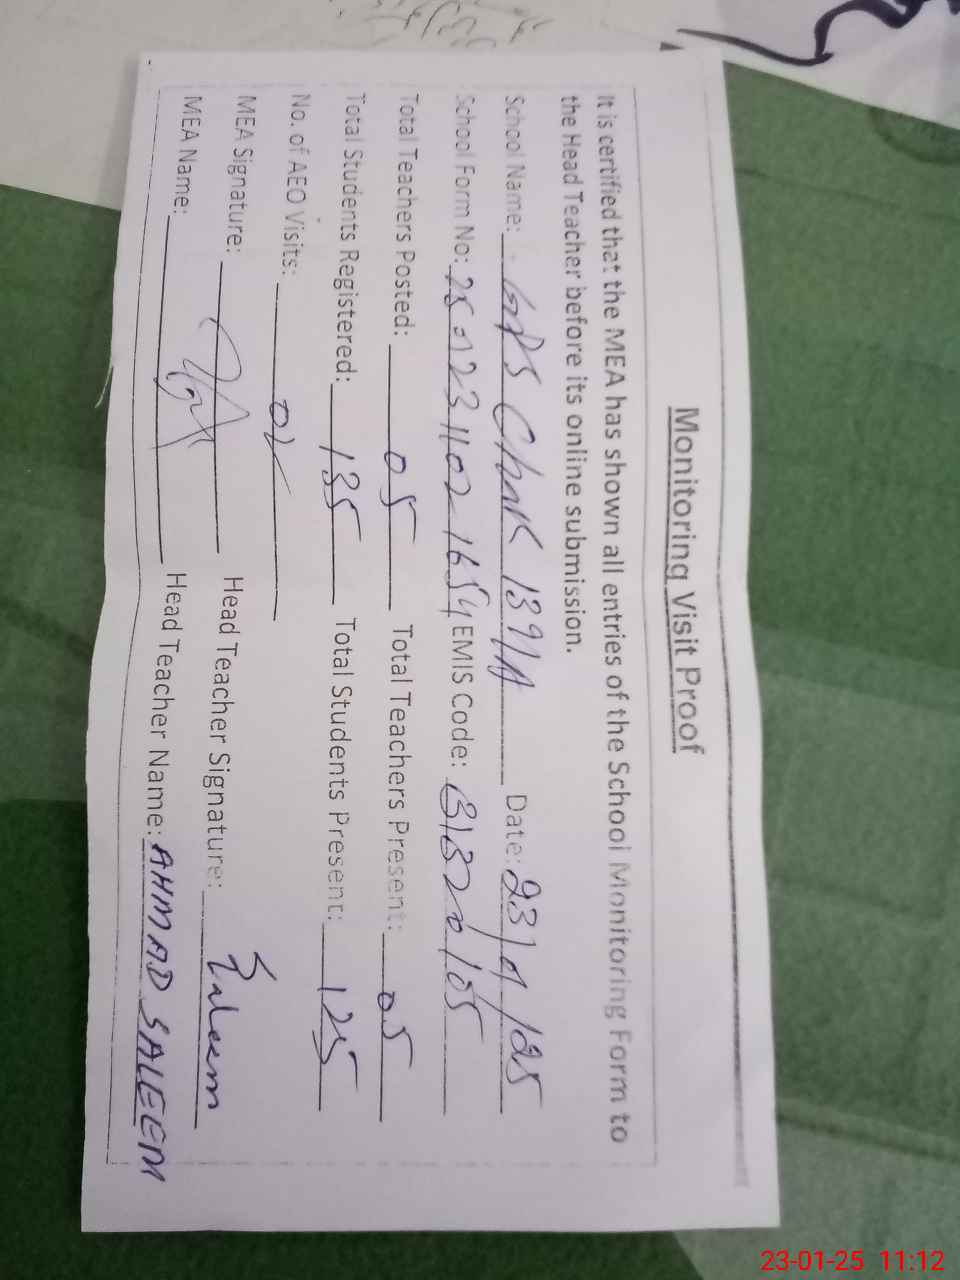 Monitoring Visit Proof
It is certified that the MEA has shown all entries of the School Monitoring Form to
the Head Teacher before its online submission.
School Name: GPS Chak 139/A Date: 23/01/25
School Form No: 25012311021654 EMIS Code: 31320105
Total Teachers Posted: 05 Total Teachers Present: 05
Total Students Registered: 135 Total Students Present: 125
No. of AEO Visits: 02
MEA Signature: Head Teacher Signature: Saleem
MEA Name: Head Teacher Name: AHMAD SALEEM
23-01-25 11:12